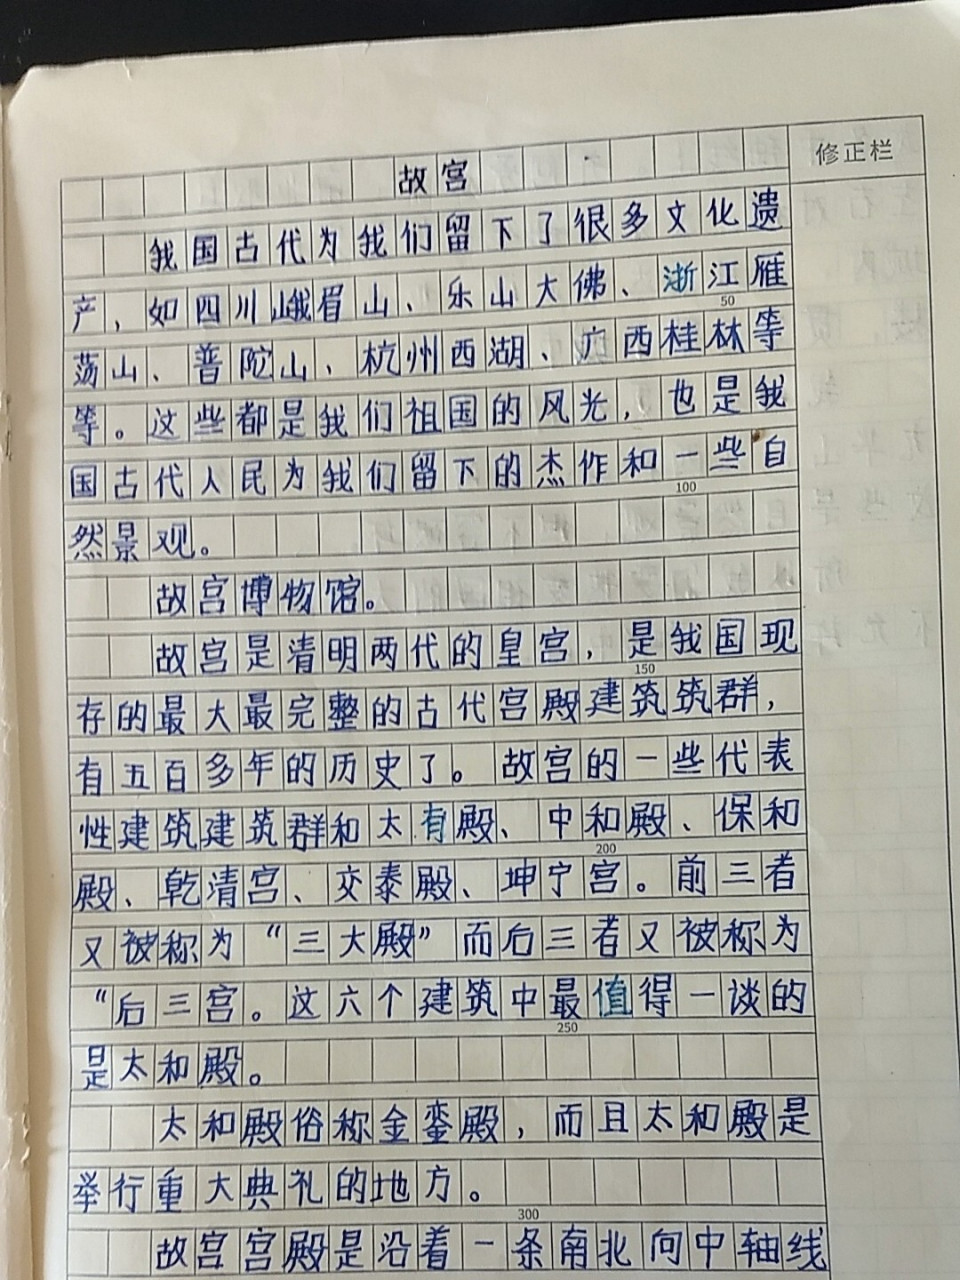 修正栏
故宫
我国古代为我们留下了很多文化遗
产，如四川峨眉山、乐山大佛、浙江雁
50
荡山、普陀山、杭州西湖、广西桂林等
等。这些都是我们祖国的风光，也是我
国古代人民为我们留下的杰作和一些自
100
然景观。
故宫博物馆。
故宫是清明两代的皇宫，是我国现
150
存的最大最完整的古代宫殿建筑筑群，
有五百多年的历史了。故宫的一些代表
性建筑建筑群和太有殿、中和殿、保和
200
殿、乾清宫、交泰殿、坤宁宫。前三者
又被称为“三大殿”而后三者又被称为
“后三宫。这六个建筑中最值得一谈的
250
是太和殿。
太和殿俗称金銮殿，而且太和殿是
举行重大典礼的地方。
300
故宫宫殿是沿着一条南北向中轴线